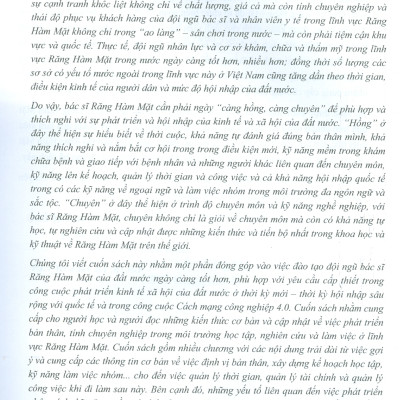 sự cạnh tranh khốc liệt không chỉ về chất lượng, giá cả mà còn tính chuyên nghiệp và
thái độ phục vụ khách hàng của đội ngũ bác sĩ và nhân viên y tế trong lĩnh vực Răng
Hàm Mặt không chỉ trong “ao làng” – sân chơi trong nước – mà còn phải tiệm cận khu
vực và quốc tế. Thực tế, đội ngũ nhân lực và cơ sở khám, chữa và thẩm mỹ trong lĩnh
vực Răng Hàm Mặt trong nước ngày càng tốt hơn, nhiều hơn; đồng thời số lượng các
cơ sở có yếu tố nước ngoài trong lĩnh vực này ở Việt Nam cũng tăng dần theo thời gian,
điều kiện kinh tế của người dân và mức độ hội nhập của đất nước.
Do vậy, bác sĩ Răng Hàm Mặt cần phải ngày “càng hồng, càng chuyên” để phù hợp và
thích nghi với sự phát triển và hội nhập của kinh tế và xã hội của đất nước. “Hồng” ở
đây thể hiện sự hiểu biết về thời cuộc, khả năng tự đánh giá đúng bản thân mình, khả
năng thích nghi và nắm bắt cơ hội trong trong điều kiện mới, kỹ năng mềm trong khám
chữa bệnh và giao tiếp với bệnh nhân và những người khác liên quan đến chuyên môn,
kỹ năng lên kế hoạch, quản lý thời gian và công việc và cả khả năng hội nhập quốc tế
trong có các kỹ năng về ngoại ngữ và làm việc nhóm trong môi trường đa ngôn ngữ và
sắc tộc. “Chuyên” ở đây thể hiện ở trình độ chuyên môn và kỹ năng nghề nghiệp, với
bác sĩ Răng Hàm Mặt, chuyên không chỉ là giỏi về chuyên môn mà còn có khả năng tự
học, tự nghiên cứu và cập nhật được những kiến thức và tiến bộ nhất trong khoa học và
kỹ thuật về Răng Hàm Mặt trên thế giới.
Chúng tôi viết cuốn sách này nhằm một phần đóng góp vào việc đào tạo đội ngũ bác sĩ
Răng Hàm Mặt của đất nước ngày càng tốt hơn, phù hợp với yêu cầu cấp thiết trong
công cuộc phát triển kinh tế xã hội của đất nước ở thời kỳ mới – thời kỳ hội nhập sâu
rộng với quốc tế và trong công cuộc Cách mạng công nghiệp 4.0. Cuốn sách nhằm cung
cấp cho người học và người đọc những kiến thức cơ bản và cập nhật về việc phát triển
bản thân, tính chuyên nghiệp trong môi trường học tập, nghiên cứu và làm việc ở lĩnh
vực Răng Hàm Mặt. Cuốn sách gồm nhiều chương với các nội dung trải dài từ việc gợi
ý và cung cấp các thông tin cơ bản về việc định vị bản thân, xây dựng kế hoạch học tập,
kỹ năng làm việc nhóm... cho đến việc quản lý thời gian, quản lý tài chính và quản lý
công việc khi đi làm sau này. Bên cạnh đó, những yếu tố liên quan đến việc phát triển